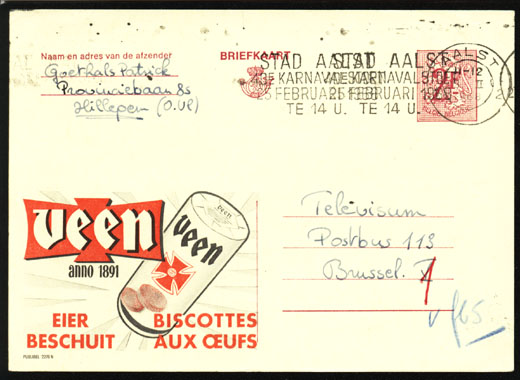 Naam en adres van de afzender
Goethals Patrick
Provinciebaan 8s
Hillegem (O.Vl)
BRIEFKAART
STAD AALST STAD AALST
KARNAVALSTOET
25 FEBRUARI 25 FEBRUARI
TE 14 U. TE 14 U.
AALST
11-12
veen
anno 1891
veen
veen
EIER BISCOTTES
BESCHUIT AUX ŒUFS
PUBLIBEL 2379 N
Télévisum
Postbus 113
Brussel. 1
v 165